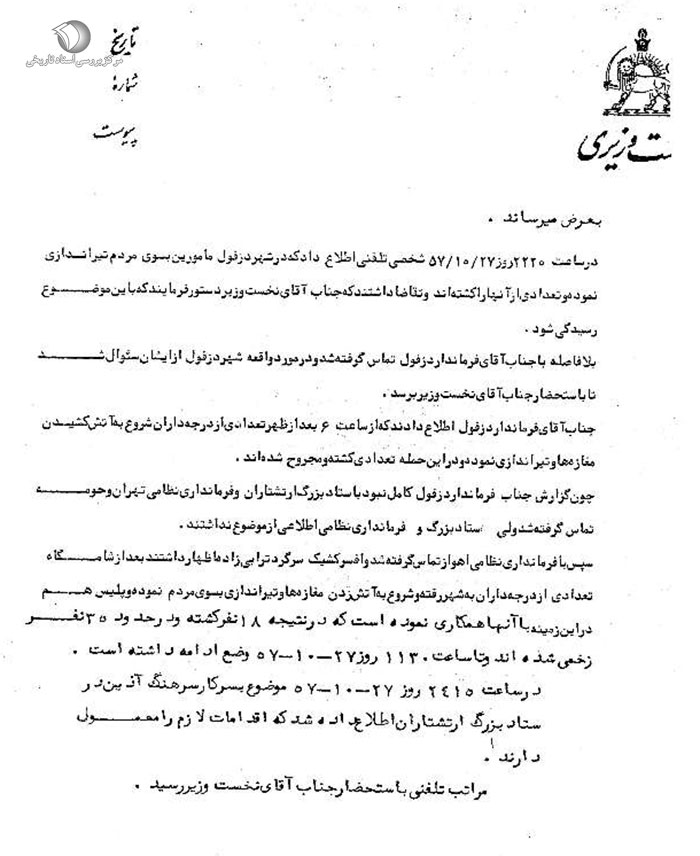 مرکز بررسی اسناد تاریخی
تاریخ
شماره
پیوست
ست وزیری
بعرض میرساند .
در ساعت ۲۲۲۰ روز ۵۷/۱۰/۲۷ شخصی تلفنی اطلاع داد که در شهر دزفول مامورین بسوی مردم تیراندازی
نموده و تعدادی از آنها را کشته‌اند و تقاضا داشتند که جناب آقای نخست وزیر دستور فرمایند که باین موضوع
رسیدگی شود .
بلافاصله با جناب آقای فرماندار دزفول تماس گرفته شد و در مورد واقعه شهر دزفول از ایشان سئوال شد
تا باستحضار جناب آقای نخست وزیر برسد .
جناب آقای فرماندار دزفول اطلاع دادند که از ساعت ۶ بعد از ظهر تعدادی از درجه داران شروع به آتش کشیدن
مغازه‌ها و تیراندازی نموده و در این حمله تعدادی کشته و مجروح شده‌اند .
چون گزارش جناب فرماندار دزفول کامل نبود با ستاد بزرگ ارتشتاران و فرمانداری نظامی تهران و حومه
تماس گرفته شد ولی ستاد بزرگ و فرمانداری نظامی اطلاعی از موضوع نداشتند .
سپس با فرمانداری نظامی اهواز تماس گرفته شد و افسر کشیک سرگرد ترابی زاده اظهار داشتند بعد از شامگاه
تعدادی از درجه داران به شهر رفته و شروع به آتش زدن مغازه‌ها و تیراندازی بسوی مردم نموده و پلیس هم
در این زمینه با آنها همکاری نموده است که در نتیجه ۱۸ نفر کشته و در حدود ۳۵ نفر
زخمی شده اند و تا ساعت ۱۱۳۰ روز ۲۷-۱۰-۵۷ وضع ادامه داشته است .
در ساعت ۲۴۱۵ روز ۲۷-۱۰-۵۷ موضوع بسرکار سرهنگ آذین در
ستاد بزرگ ارتشتاران اطلاع داده شد که اقدامات لازم را معمول
دارند .
مراتب تلفنی باستحضار جناب آقای نخست وزیر رسید .